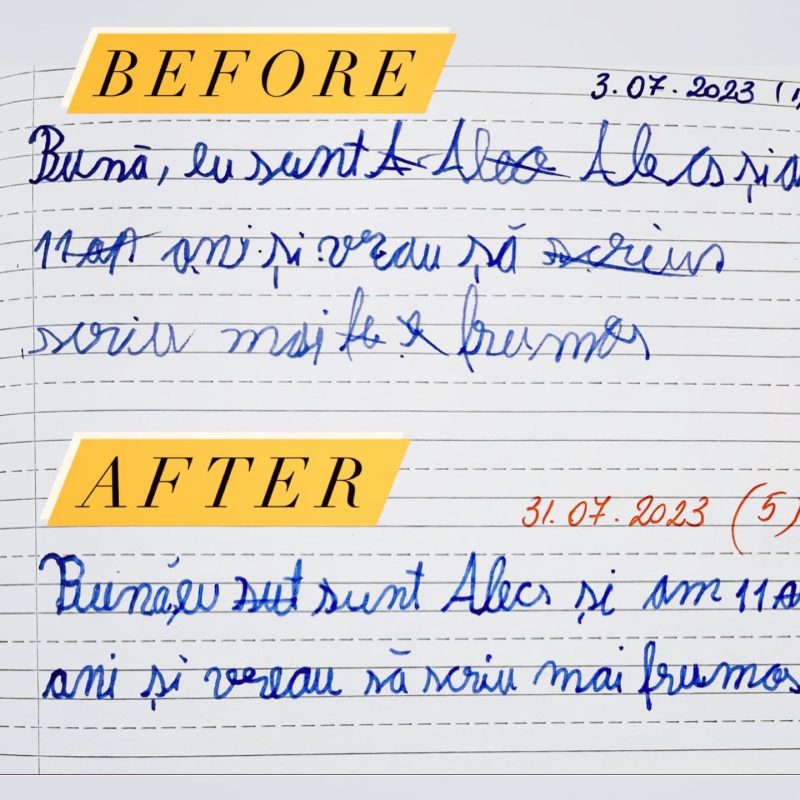 BEFORE
3.07.2023 (1)
Bună, eu sunt A Alec Alecs și a
11 an ani și vreau să scrius
scriu mai fr frumos
AFTER
31.07.2023 (5)
Bună, eu sut sunt Alecs și am 11 a
ani și vreau să scriu mai frumos